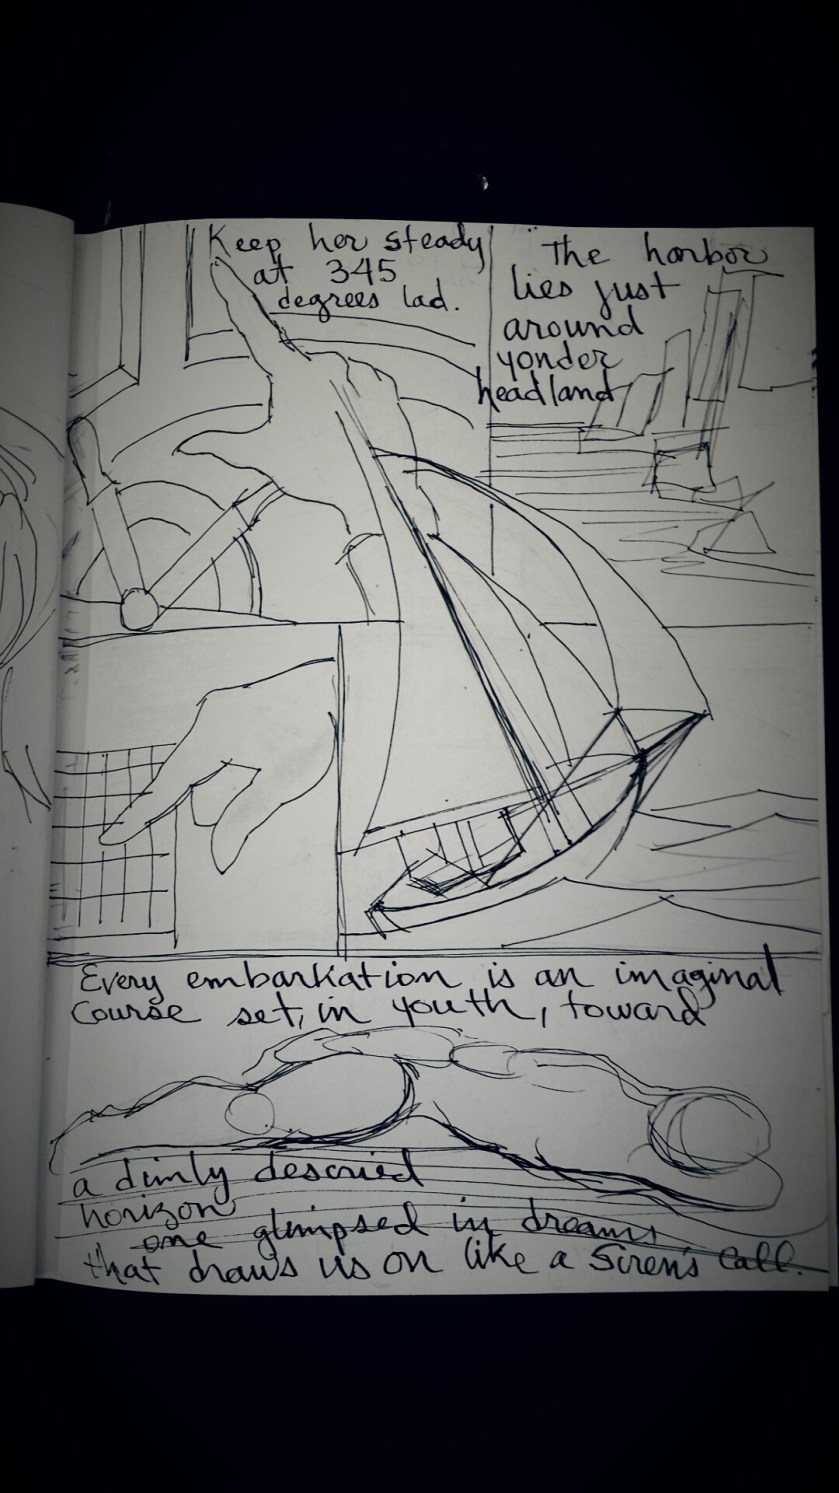 Keep her steady
at 345
degrees lad.
"The harbor
lies just
around
yonder
headland
Every embarkation is an imaginal
course set, in youth, toward
a dimly descried
horizon
one glimpsed in dreams
that draws us on like a Siren's call.